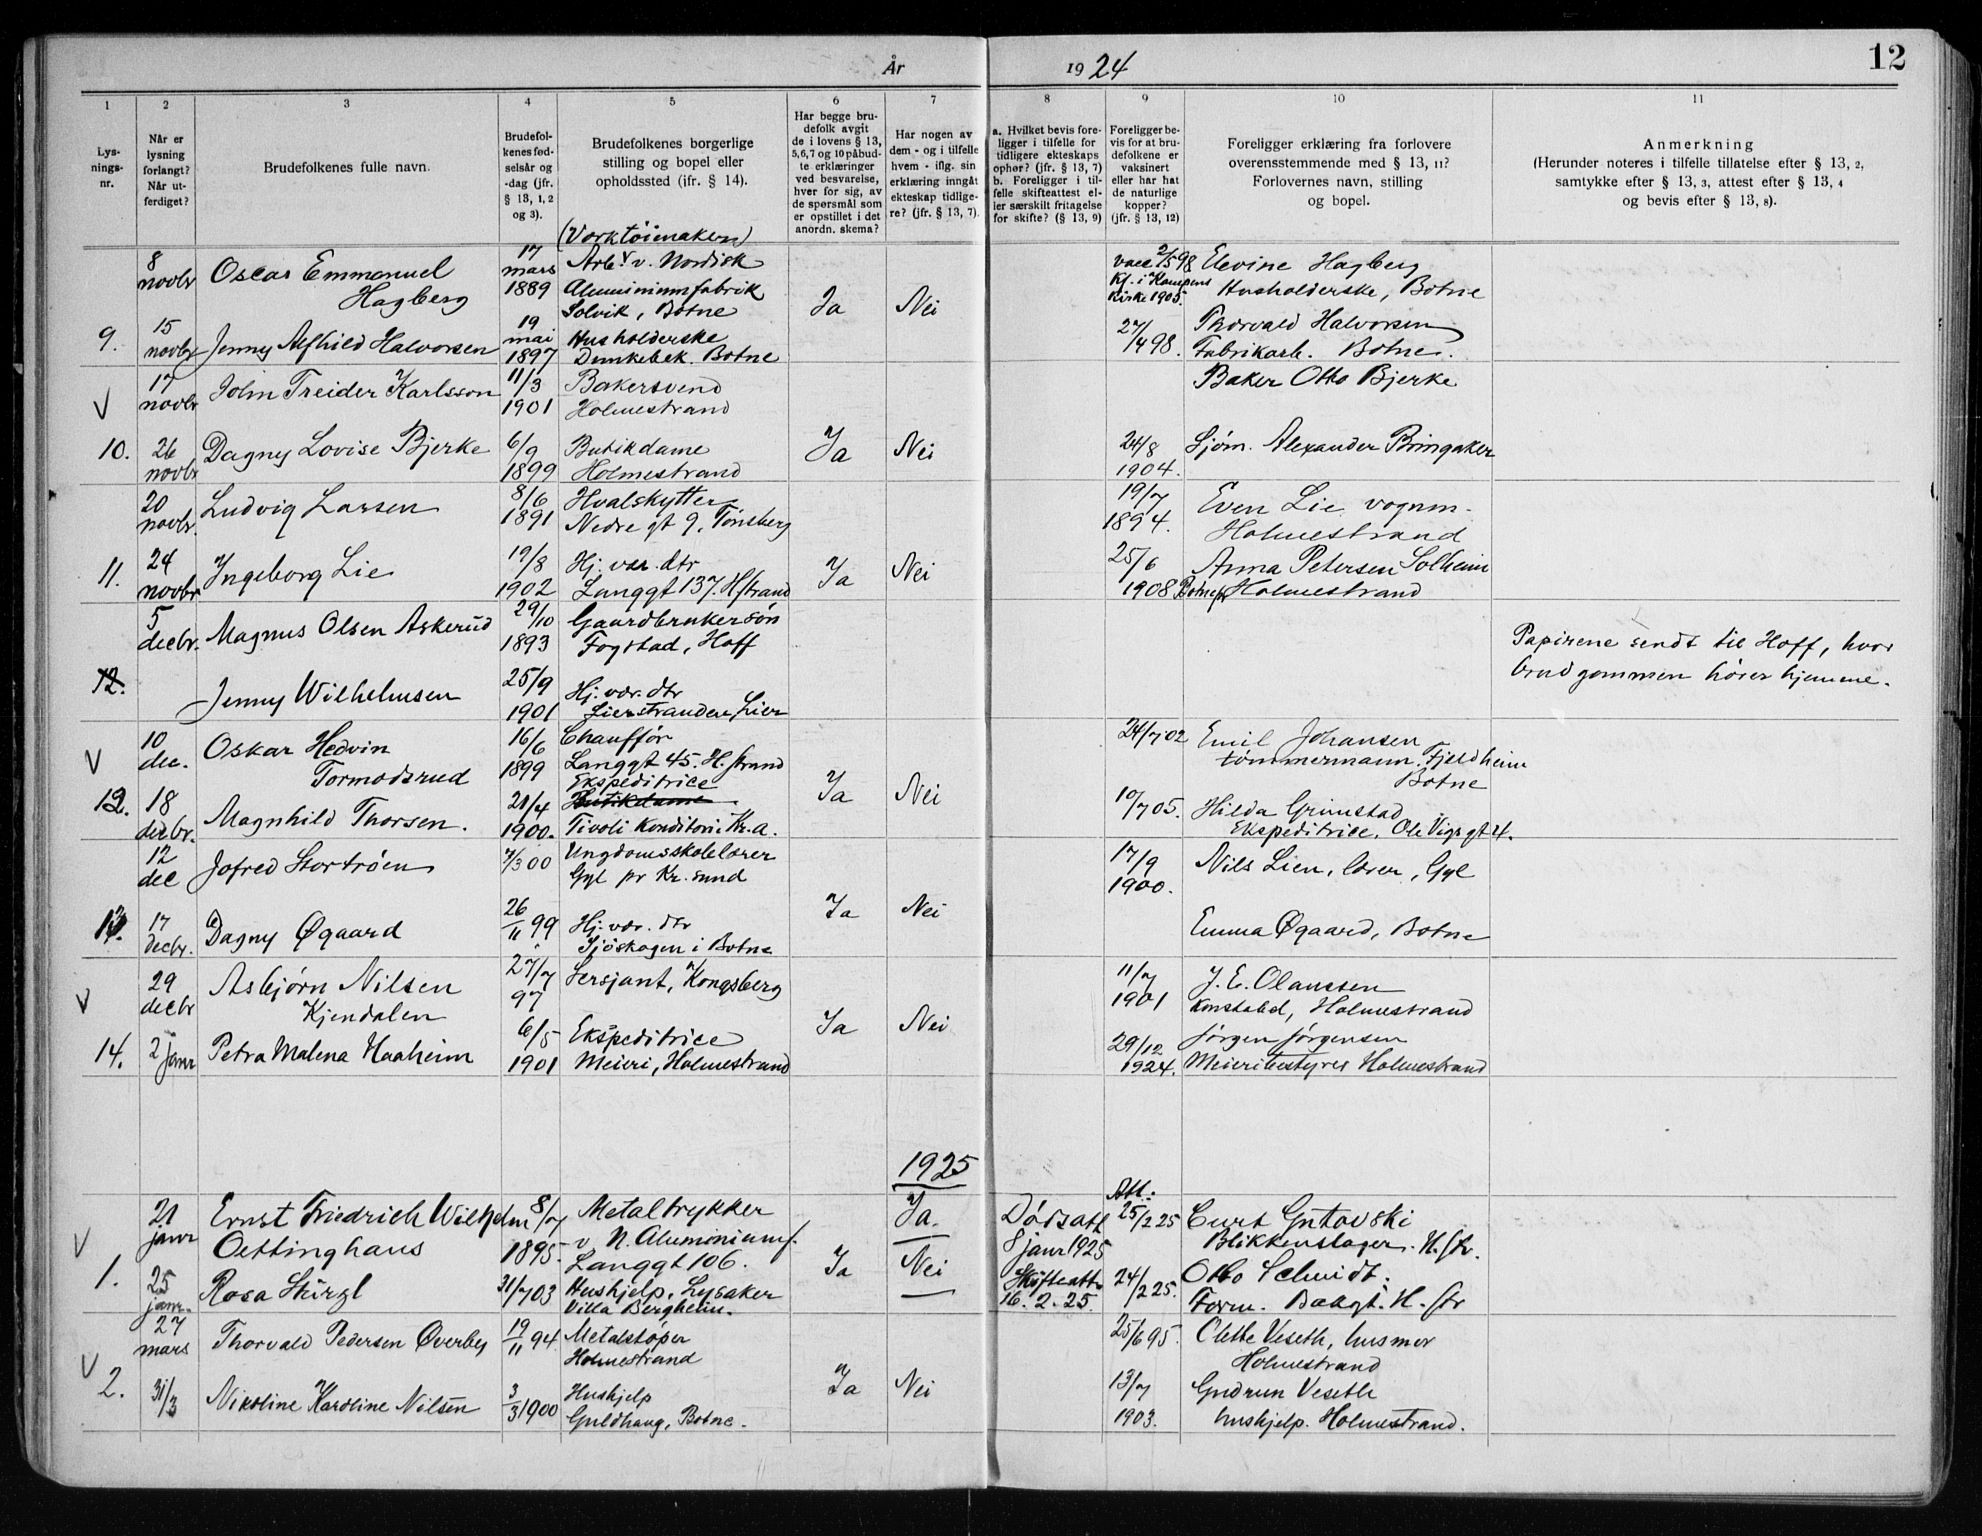 År 1924
12
1
2
3
4
5
6
7
8
9
10
11
Lys-
nings-
nr.
Når er
lysning
forlangt?
Når ut-
ferdiget?
Brudefolkenes fulle navn.
Brudefol-
kenes fød-
selsår og
-dag (jfr.
§ 13, 1, 2
og 3).
Brudefolkenes borgerlige
stilling og bopel eller
opholdssted (ifr. § 14).
Har begge bru-
defolk avgit
de i lovens § 13,
5,6,7 og 10 påbud-
te erklæringer
ved besvarelse,
hver for sig, av
de spørsmål som
er opstillet i det
anordn. skema?
Har nogen av
dem - og i tilfelle
hvem - iflg. sin
erklæring inngåt
ekteskap tidlige-
re? (jfr. § 13, 7).
a. Hvilket bevis fore-
ligger i tilfelle for
tidligere ekteskaps
ophør? (jfr. § 13, 7)
b. Foreligger i til-
felle skifteattest el-
ler særskilt fritagelse
for skifte? (§ 13, 9)
Foreligger be-
vis for at bru-
defolkene er
vaksinert
eller har hat
de naturlige
kopper?
(jfr. § 13, 12)
Foreligger erklæring fra forlovere
overensstemmende med § 13, 11?
Forlovernes navn, stilling
og bopel.
Anmerkning
(Herunder noteres i tilfelle tillatelse efter § 13, 2,
samtykke efter § 13, 3, attest efter § 13, 4
og bevis efter § 13, 8).
8 novbr Oscar Emmanuel Hagberg 17 mars 1889 (Verktøimaker) Arb. v. Nordisk Aluminiumfabrik Solvik, Botne Ja Nei vacc 2/5 98 Kf. i Kampens Kirke 1905. Elevine Hagberg Husholderske, Botne
9. 15 novbr Jenny Alfhild Halvorsen 19 mai 1897 Husholderske Dunkebek. Botne 27/4 98. Thorvald Halvorsen Fabrikarb. Botne.
V 17 novbr John Treider Karlsson 11/3 1901 Bakersvend Holmestrand Baker Otto Bjerke
10. 26 novbr Dagny Lovise Bjerke 6/9 1899 Butikdame Holmestrand Ja Nei 24/8 1904. Sjøm. Alexander Bringaker
20 novbr. Ludvig Larsen 8/6 1891 Hvalskytter Nedre gt 9, Tønsberg 19/7 1894. Even Lie vognm. Holmestrand
11. 24 novbr Ingeborg Lie 19/8 1902 Hj. vær. dtr Langgt 137. H.strand Ja Nei 25/6 1908 Anna Petersen Solheim Holmestrand
5 decbr. Magnus Olsen Askerud 29/10 1893 Gaardbrukersøn Fogstad, Hoff Papirene sendt til Hoff, hvor brudgommen hører hjemme.
12. Jenny Wilhelmsen 25/9 1901 Hj. vær. dtr Lierstranden, Lier
V 10 dec. Oskar Hedvin Tormodsrud 16/6 1899 Chauffør Langgt 45. H. strand 24/7 02 Emil Johansen tømmermann. Fjeldheim Botne
12. 18 decbr. Magnhild Thorsen. 21/4 1900. Ekspeditrice Butikdame Tivoli Konditori Kr.a. Ja Nei 10/7 05. Hilda Grimstad Ekspeditrice, Ole Vigs gt 4.
12 dec Jofred Stortrøen 7/3 00 Ungdomsskolelærer Gyl pr Kr. sund 17/9 1900. Nils Lien, lærer, Gyl
13. 17 decbr. Dagny Øgaard 26/11 99 Hj. vær. dtr Sjøskogen i Botne Ja Nei Emma Øgaard, Botne
V 29 decbr Asbjørn Nilsen Kjendalen 27/7 97 Sersjant, Kongsberg 11/7 1901 J. E. Olaussen Konstabel, Holmestrand
14. 2 janr Petra Malena Haaheim 6/5 1901 Ekspeditrice Meieri, Holmestrand Ja Nei 29/12 1924. Jørgen Jørgensen Meieribestyrer Holmestrand
1925
V 21 janr Ernst Friedrich Wilhelm Oettinghaus 8/7 1895. Metaltrykker v N. Aluminiumf. Langgt 106. Ja. Dødsatt 8 janr 1925 Att: 25/2 25 Curt Gutovski Blikkenslager. H. str.
1. 25 janr. Rosa Stürzl 31/7 03 Hushjelp, Lysaker Villa Bergheim. Ja Nei Skifteatt. 16. 2. 25. 24/2 25. Otto Schmidt. Form. Bakgt. H. str
V 27 mars Thorvald Pedersen Øverby 19/11 94 Metalstøper Holmestrand 25/6 95. Olette Veseth, husmor Holmestrand
2. 31/3 Nikoline Karoline Nilsen 3/3 1900 Hushjelp Guldhaug, Botne. Ja Nei 13/7 1903. Gudrun Veseth hushjelp. Holmestrand.